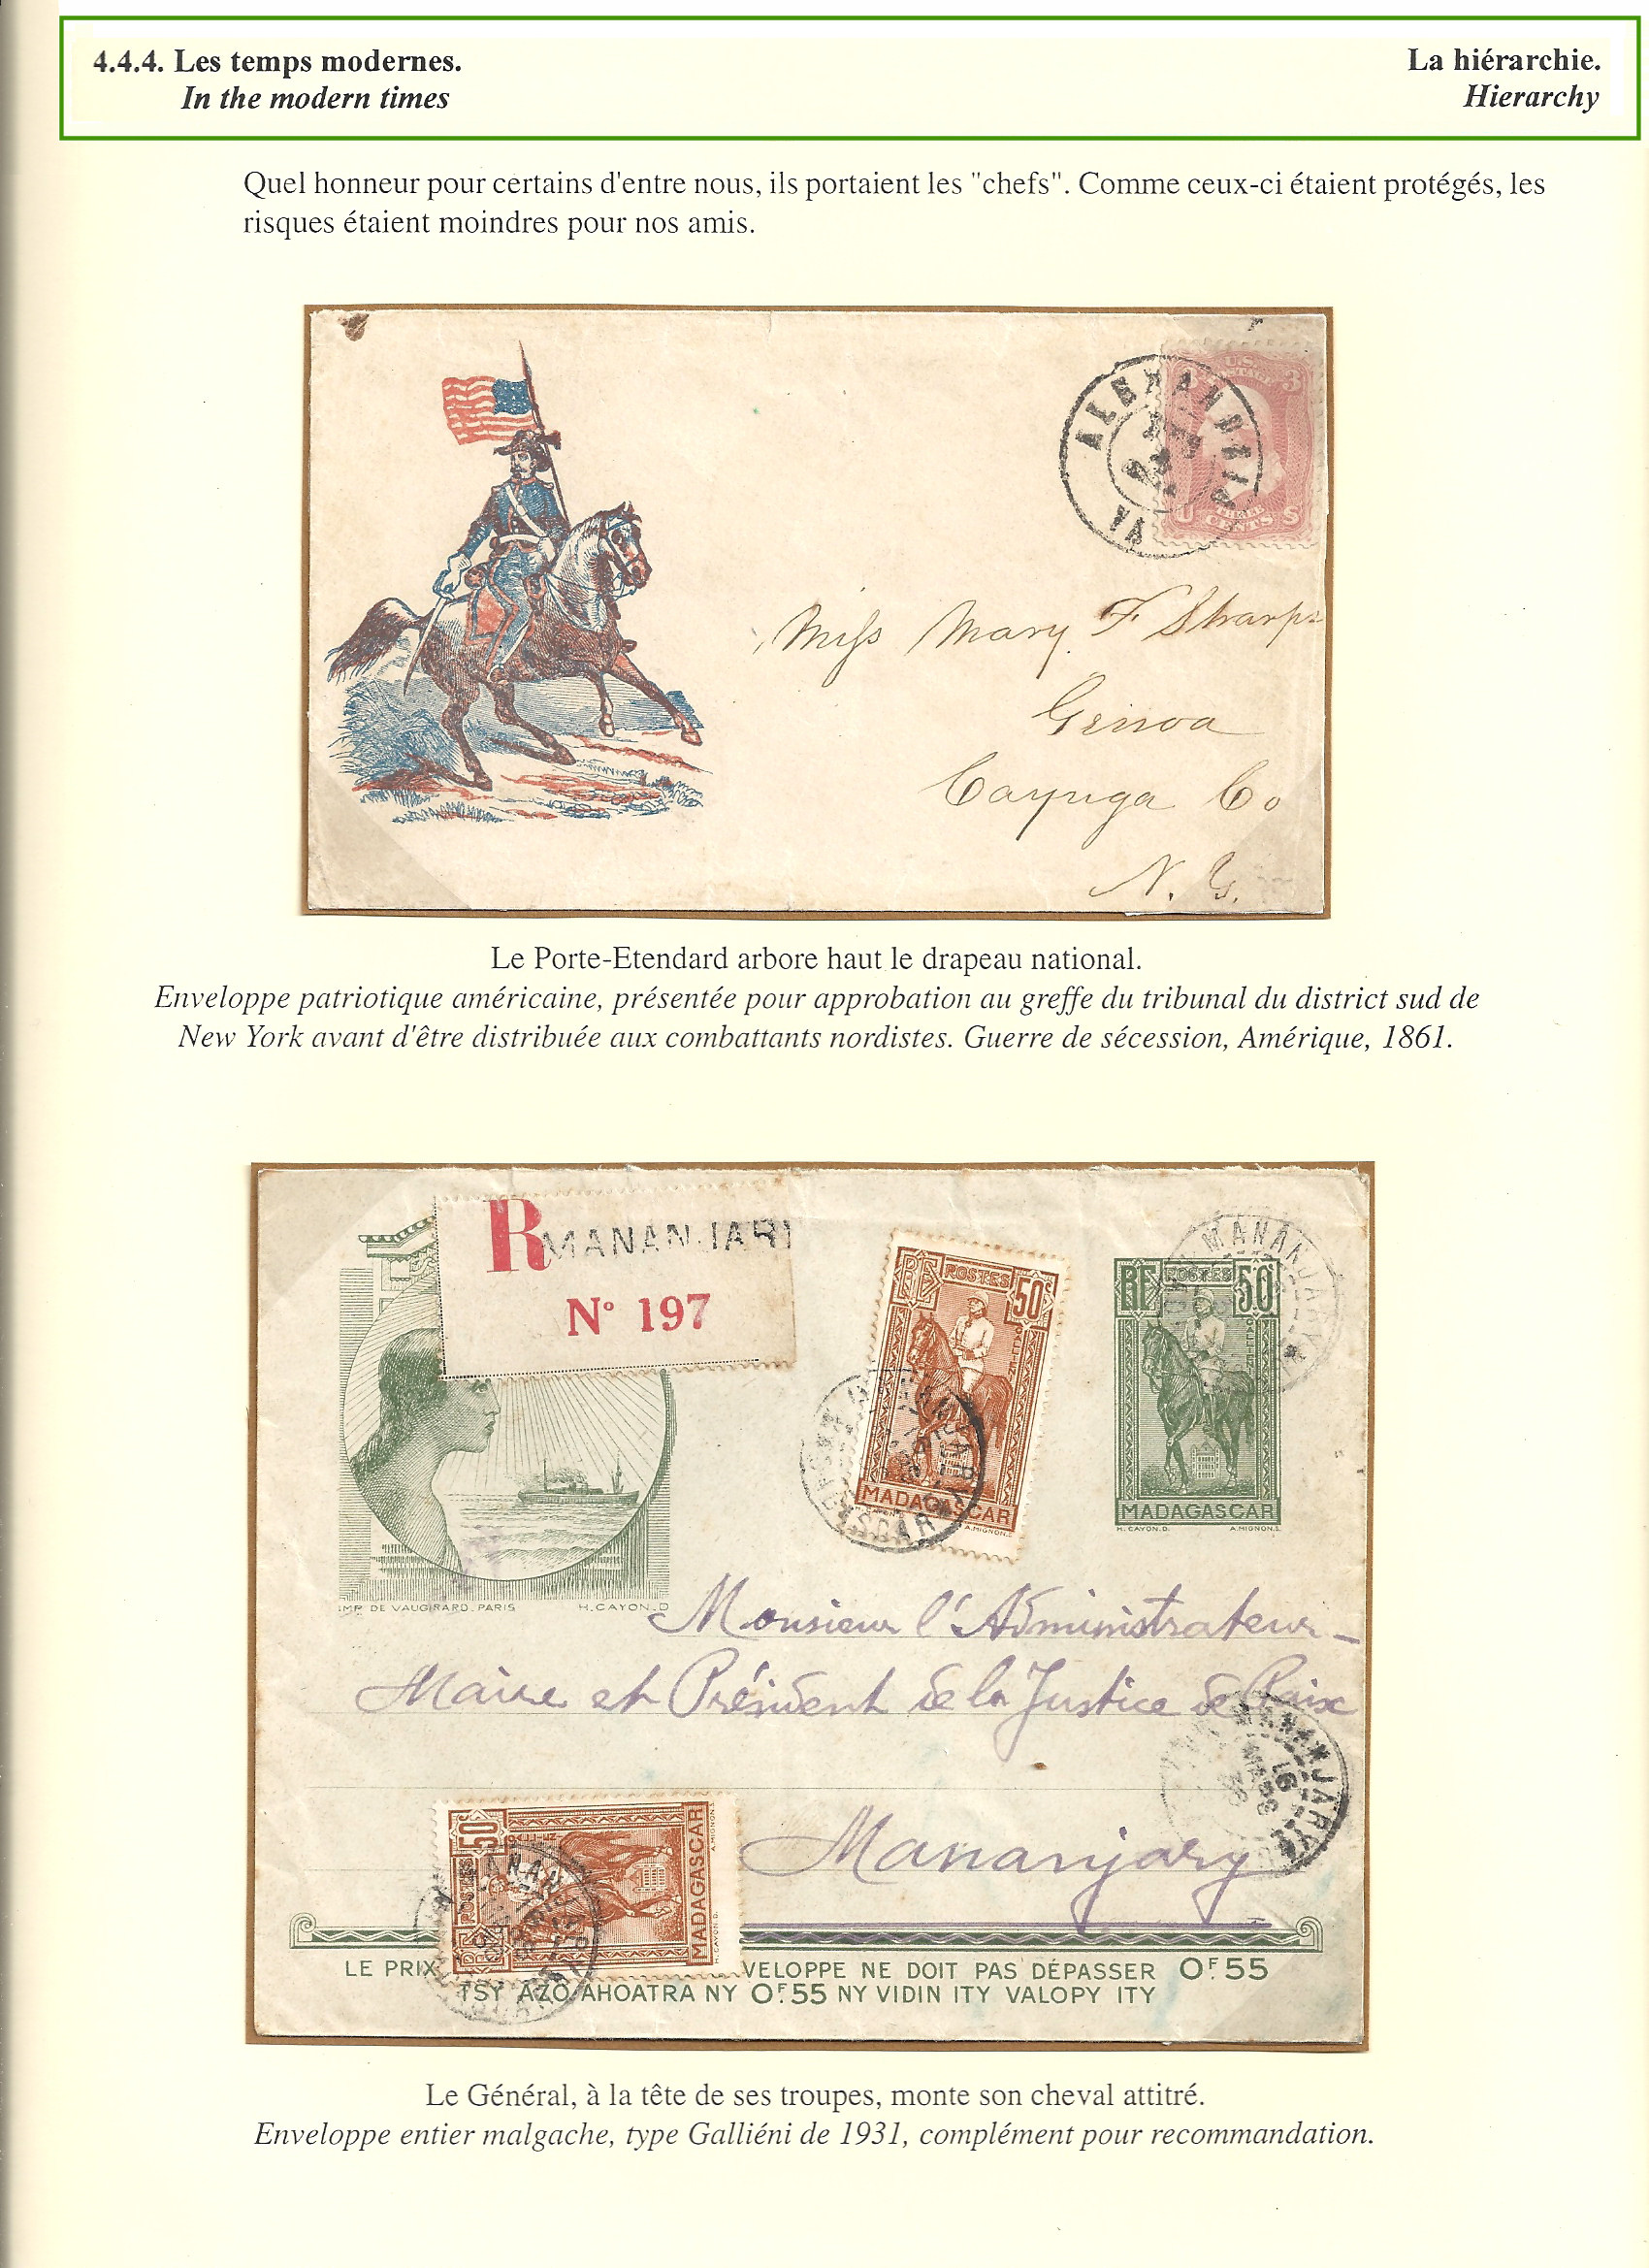 4.4.4. Les temps modernes.
In the modern times
La hiérarchie.
Hierarchy
Quel honneur pour certains d'entre nous, ils portaient les "chefs". Comme ceux-ci étaient protégés, les
risques étaient moindres pour nos amis.
ALEXANDRIA
VA
U.S.
POSTAGE
3
THREE
CENTS
U S
Miss Mary F Sharps
Genoa
Cayuga Co
N. Y.
Le Porte-Etendard arbore haut le drapeau national.
Enveloppe patriotique américaine, présentée pour approbation au greffe du tribunal du district sud de
New York avant d'être distribuée aux combattants nordistes. Guerre de sécession, Amérique, 1861.
R MANANJARY
N° 197
RF POSTES 50c
MADAGASCAR
A.MIGNON.S.
MANANJARY
RF POSTES 50c
GALLIENI
MADAGASCAR
H. CAYON.D. A.MIGNON.S.
IMP. DE VAUGIRARD. PARIS H.CAYON.D
Monsieur l'Administrateur-
Maire et Président de la Justice de Paix
MANANJARY
16
MARS
Mananjary
POSTES 50c
MADAGASCAR
H. CAYON.D. A.MIGNON.S.
LE PRIX VELOPPE NE DOIT PAS DÉPASSER 0F.55
TSY AZO AHOATRA NY 0F.55 NY VIDIN ITY VALOPY ITY
Le Général, à la tête de ses troupes, monte son cheval attitré.
Enveloppe entier malgache, type Galliéni de 1931, complément pour recommandation.